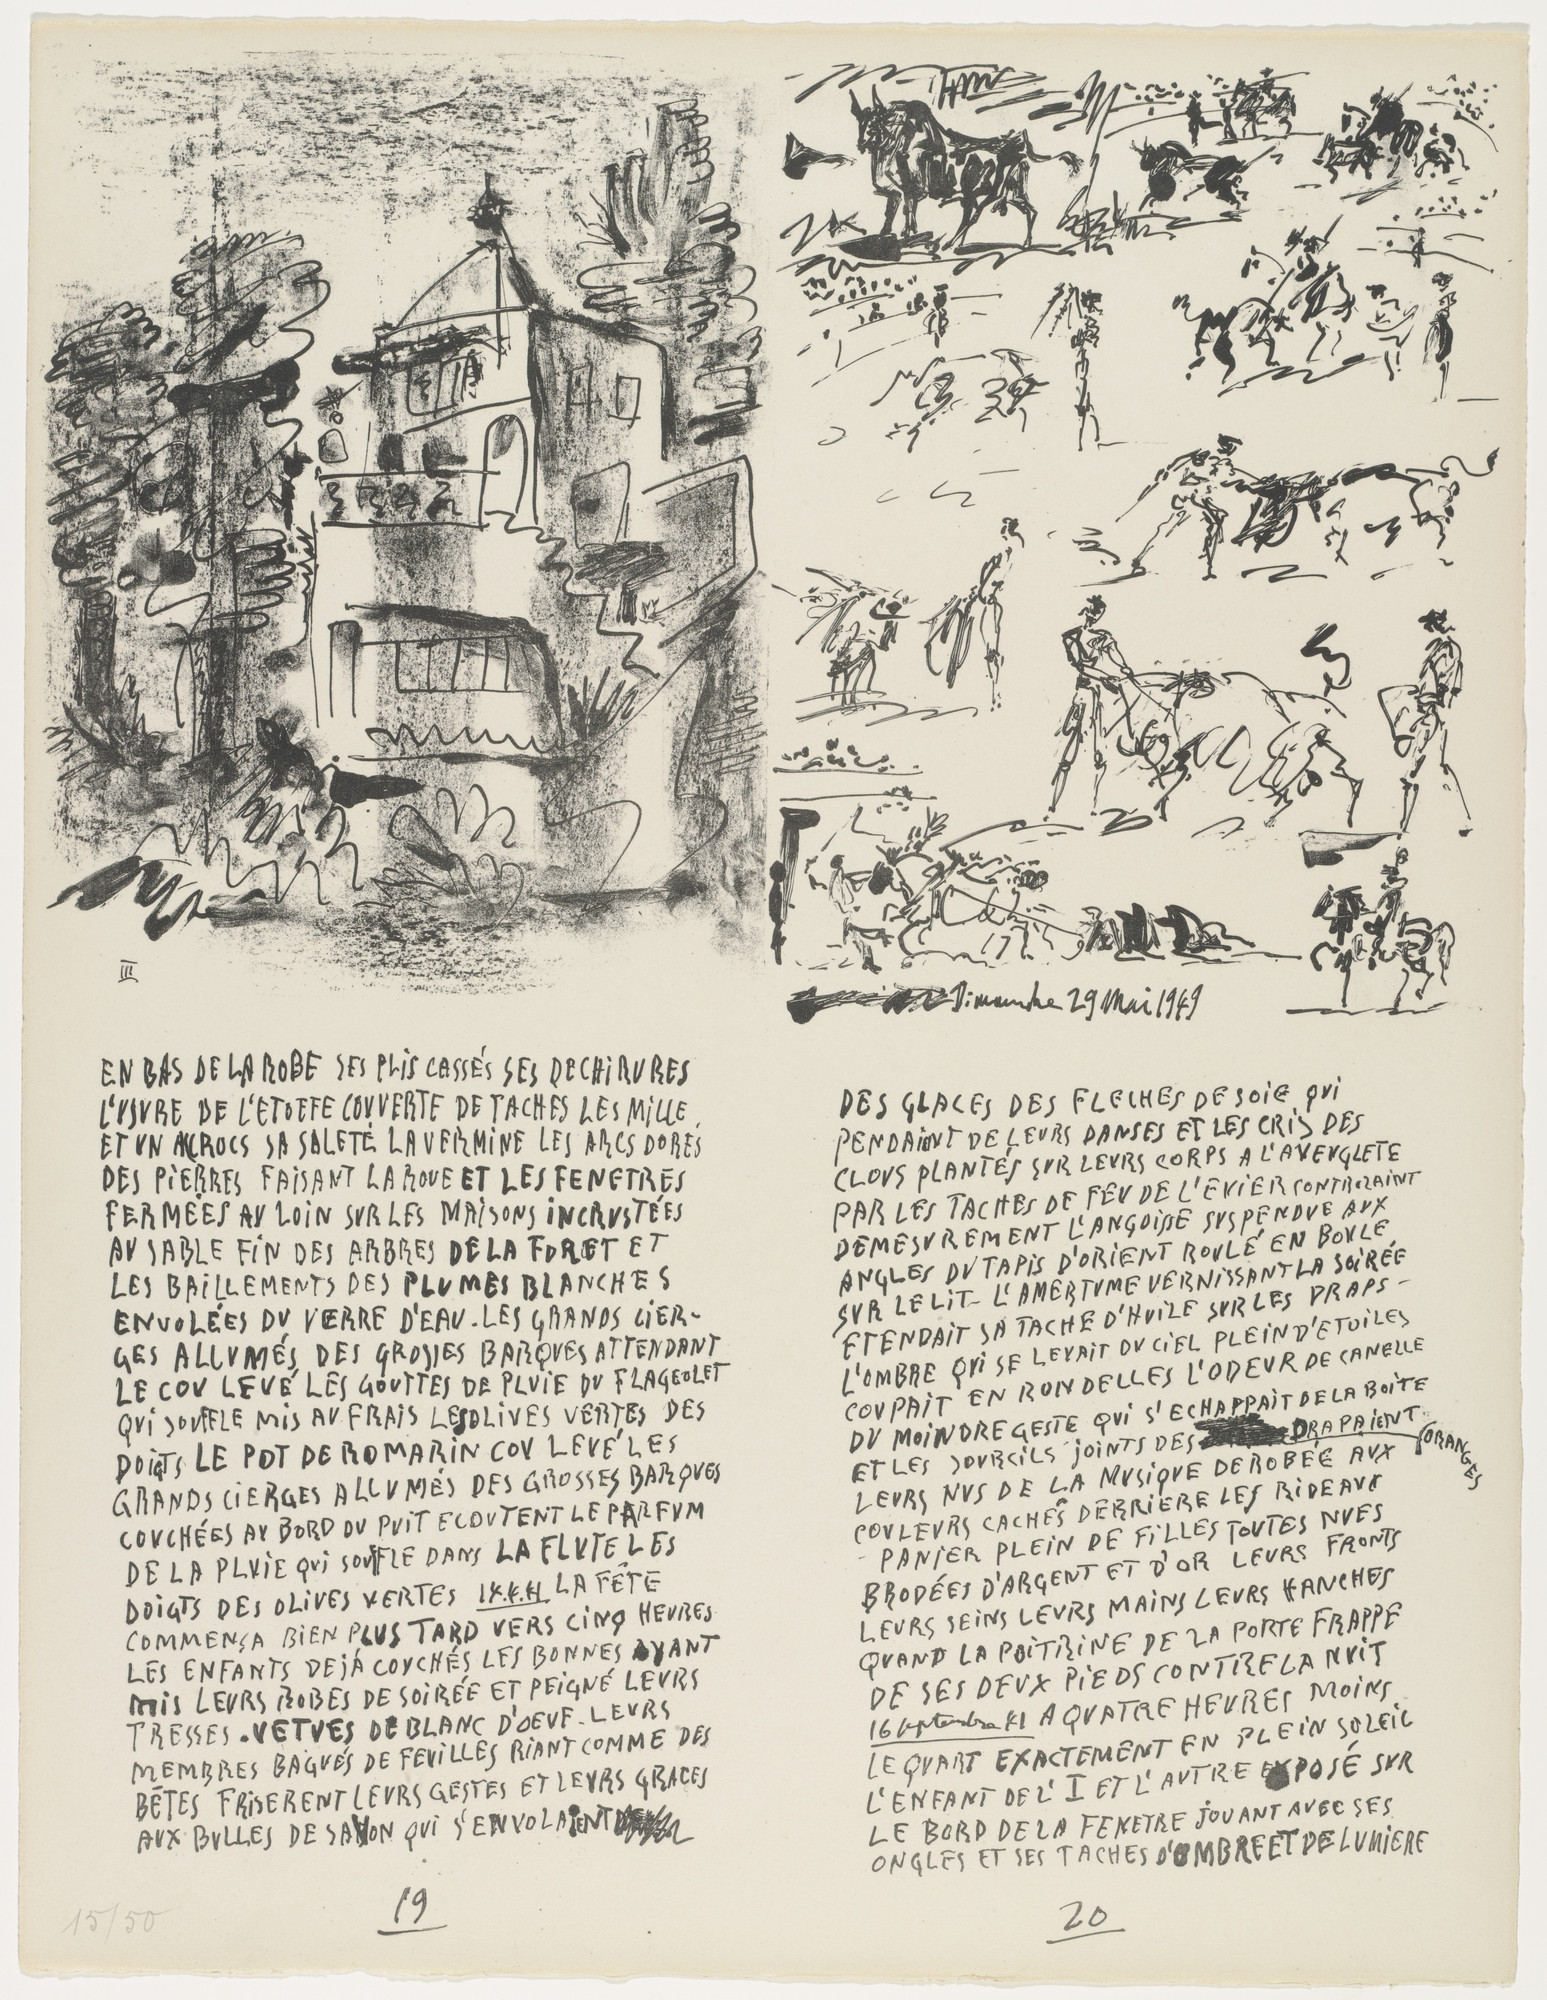 III
Dimanche 29 Mai 1949
EN BAS DE LA ROBE SES PLIS CASSÉS SES DECHIRURES
L'USURE DE L'ETOFFE COUVERTE DE TACHES LES MILLE
ET UN ACCROCS SA SALETÉ LA VERMINE LES ARCS DORÉS
DES PIERRES FAISANT LA ROUE ET LES FENETRES
FERMÉES AU LOIN SUR LES MAISONS INCRUSTÉES
AU SABLE FIN DES ARBRES DE LA FORET ET
LES BAILLEMENTS DES PLUMES BLANCHES
ENVOLÉES DU VERRE D'EAU. LES GRANDS CIER-
GES ALLUMÉS DES GROSSES BARQUES ATTENDANT
LE COU LEVÉ LES GOUTTES DE PLUIE DU FLAGEOLET
QUI SOUFFLE MIS AU FRAIS LES OLIVES VERTES DES
DOIGTS LE POT DE ROMARIN COU LEVÉ LES
GRANDS CIERGES ALLUMÉS DES GROSSES BARQUES
COUCHÉES AU BORD DU PUIT ECOUTENT LE PARFUM
DE LA PLUIE QUI SOUFFLE DANS LA FLUTE LES
DOIGTS DES OLIVES VERTES 14.4.41 LA FÊTE
COMMENÇA BIEN PLUS TARD VERS CINQ HEURES
LES ENFANTS DEJÁ COUCHÉS LES BONNES AYANT
MIS LEURS ROBES DE SOIRÉE ET PEIGNÉ LEURS
TRESSES. VETUES DE BLANC D'OEUF. LEURS
MEMBRES BAGUÉS DE FEUILLES RIANT COMME DES
BÊTES FRISERENT LEURS GESTES ET LEURS GRACES
AUX BULLES DE SAVON QUI S'ENVOLAIENT
19
DES GLACES DES FLECHES DE SOIE QUI
PENDAIENT DE LEURS DANSES ET LES CRIS DES
CLOUS PLANTÉS SUR LEURS CORPS A L'AVEUGLETE
PAR LES TACHES DE FEU DE L'EVIER CONTROLAINT
DEMESUREMENT L'ANGOISSE SUSPENDUE AUX
ANGLES DU TAPIS D'ORIENT ROULÉ EN BOULE
SUR LE LIT- L'AMERTUME VERNISSANT LA SOIRÉE
ETENDAIT SA TACHE D'HUILE SUR LES DRAPS -
L'OMBRE QUI SE LEVAIT DU CIEL PLEIN D'ETOILES
COUPAIT EN RONDELLES L'ODEUR DE CANELLE
DU MOINDRE GESTE QUI S'ECHAPPAIT DE LA BOITE
ET LES SOURCILS JOINTS DES ORANGES DRAPAIENT
LEURS NUS DE LA MUSIQUE DEROBÉE AUX
COULEURS CACHÉS DERRIERE LES RIDEAUX
- PANIER PLEIN DE FILLES TOUTES NUES
BRODÉES D'ARGENT ET D'OR LEURS FRONTS
LEURS SEINS LEURS MAINS LEURS HANCHES
QUAND LA POITRINE DE LA PORTE FRAPPE
DE SES DEUX PIEDS CONTRE LA NUIT
16 septembre 41 A QUATRE HEURES MOINS
LE QUART EXACTEMENT EN PLEIN SOLEIL
L'ENFANT DE L'I ET L'AUTRE EXPOSÉ SUR
LE BORD DE LA FENETRE JOUANT AVEC SES
ONGLES ET SES TACHES D'OMBRE ET DE LUMIERE
20
15/50